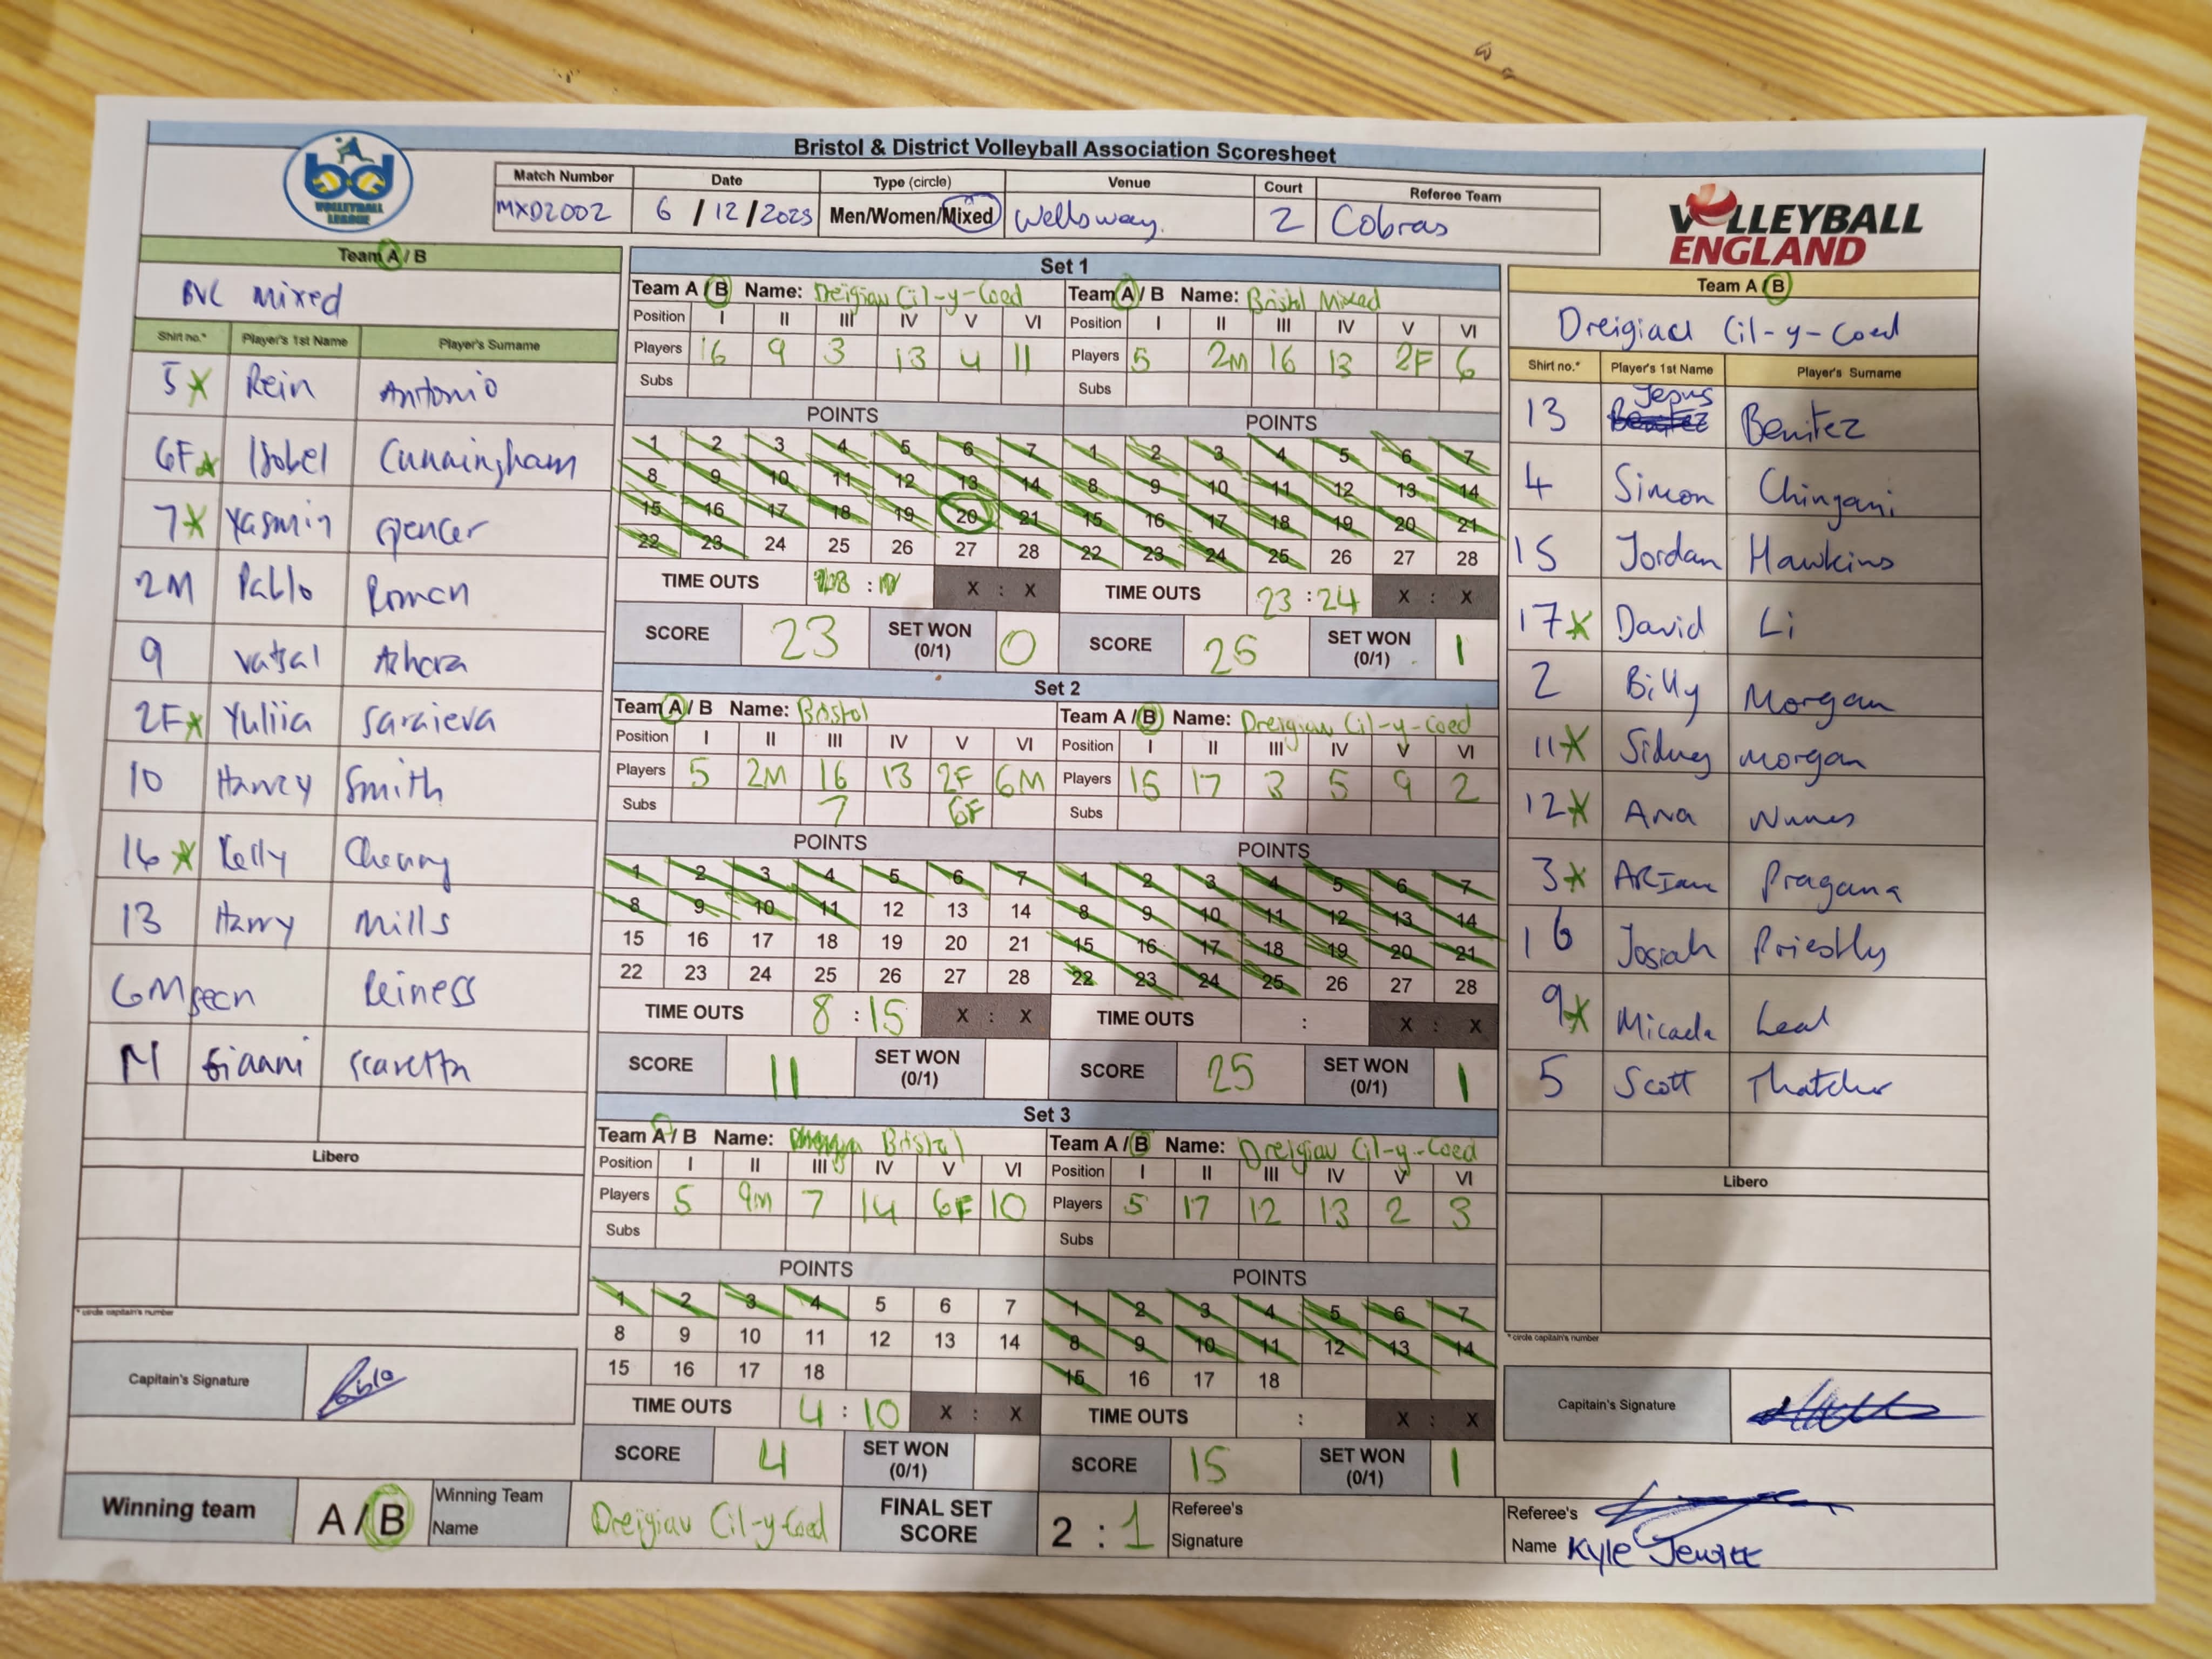 Bristol & District Volleyball Association Scoresheet
VOLLEYBALL LEAGUE
Match Number Date Type (circle) Venue Court Referee Team
MXD2002 6 / 12 / 2023 Men/Women/Mixed Wellsway. 2 Cobras
VOLLEYBALL ENGLAND
Team A / B
BVC Mixed
Shirt no.* Player's 1st Name Player's Surname
5 Rein Antonio
6F Isobel Cunningham
7 Yasmin Spencer
2M Pablo Roman
9 Vatsal
2F Yuliia Saraieva
10 Harvey Smith
14 Kelly Cheung
13 Harry Mills
6M Sean Reiness
M Gianni
Libero
* circle captain's number
Capitain's Signature
Set 1
Team A / B Name: Dreigiau Cil-y-Coed Team A / B Name: Bristol Mixed
Position I II III IV V VI Position I II III IV V VI
Players 16 9 3 13 4 11 Players 5 2M 16 13 2F 6
Subs Subs
POINTS POINTS
1 2 3 4 5 6 7 1 2 3 4 5 6 7
8 9 10 11 12 13 14 8 9 10 11 12 13 14
15 16 17 18 19 20 21 15 16 17 18 19 20 21
22 23 24 25 26 27 28 22 23 24 25 26 27 28
TIME OUTS : X : X TIME OUTS 23 : 24 X : X
SCORE 23 SET WON (0/1) 0 SCORE 25 SET WON (0/1) 1
Set 2
Team A / B Name: Bristol Team A / B Name: Dreigiau Cil-y-Coed
Position I II III IV V VI Position I II III IV V VI
Players 5 2M 16 13 2F 6M Players 15 17 3 5 9 2
Subs 7 6F Subs
POINTS POINTS
1 2 3 4 5 6 7 1 2 3 4 5 6 7
8 9 10 11 12 13 14 8 9 10 11 12 13 14
15 16 17 18 19 20 21 15 16 17 18 19 20 21
22 23 24 25 26 27 28 22 23 24 25 26 27 28
TIME OUTS 8 : 15 X : X TIME OUTS : X : X
SCORE 11 SET WON (0/1) SCORE 25 SET WON (0/1) 1
Set 3
Team A / B Name: Bristol Team A / B Name: Dreigiau Cil-y-Coed
Position I II III IV V VI Position I II III IV V VI
Players 5 9M 7 14 6F 10 Players 5 17 12 13 2 3
Subs Subs
POINTS POINTS
1 2 3 4 5 6 7 1 2 3 4 5 6 7
8 9 10 11 12 13 14 8 9 10 11 12 13 14
15 16 17 18 15 16 17 18
TIME OUTS 4 : 10 X : X TIME OUTS : X : X
SCORE 4 SET WON (0/1) SCORE 15 SET WON (0/1) 1
Team A / B
Dreigiau Cil-y-Coed
Shirt no.* Player's 1st Name Player's Surname
13 Jesus Benitez
4 Simon Chingani
15 Jordan Hawkins
17 David Li
2 Billy Morgan
11 Sidney Morgan
12 Ana Nunes
3 Pragana
16 Josiah Priestly
9 Micaela Leal
5 Scott Thatcher
Libero
* circle captain's number
Capitain's Signature
Winning team A / B Winning Team Name Dreigiau Cil-y-Coed FINAL SET SCORE 2 : 1 Referee's Signature
Referee's Name Kyle Jewitt